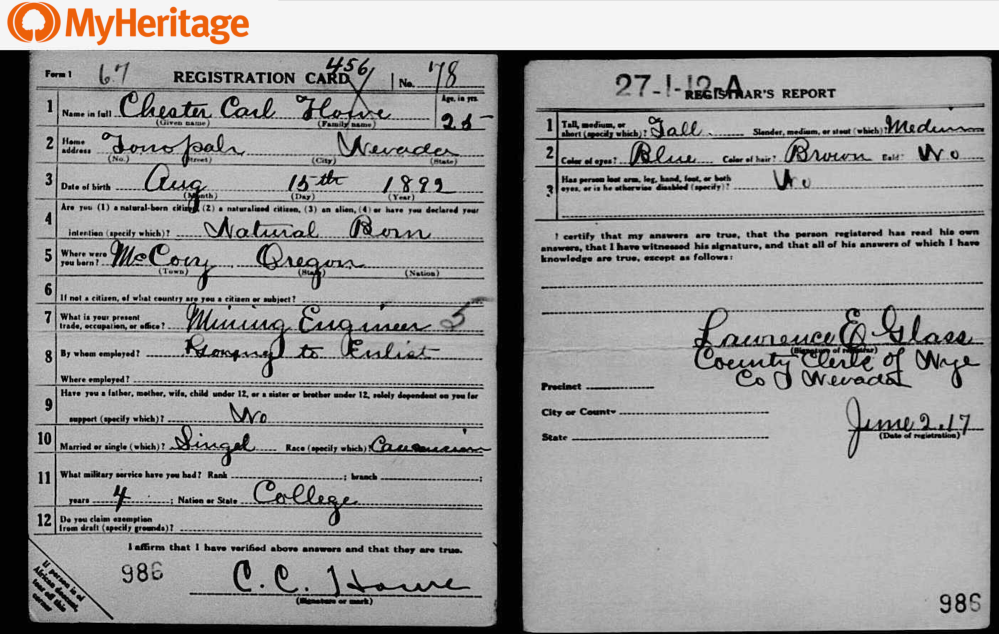 MyHeritage
Form 1 67 REGISTRATION CARD 456 No. 78
1 Name in full Chester Carl Howe Age, in yrs. 25
(Given name) (Family name)
2 Home address Tonopah Nevada
(No.) (Street) (City) (State)
3 Date of birth Aug 15th 1892
(Month) (Day) (Year)
4 Are you (1) a natural-born citizen, (2) a naturalized citizen, (3) an alien, (4) or have you declared your
intention (specify which)? Natural Born
5 Where were you born? McCoy Oregon
(Town) (State) (Nation)
6 If not a citizen, of what country are you a citizen or subject?
7 What is your present trade, occupation, or office? Mining Engineer 5
8 By whom employed? to Enlist
Where employed?
9 Have you a father, mother, wife, child under 12, or a sister or brother under 12, solely dependent on you for
support (specify which)? No
10 Married or single (which)? Singel Race (specify which)? Caucasian
11 What military service have you had? Rank ; branch ;
years 4 ; Nation or State College
12 Do you claim exemption from draft (specify grounds)?
I affirm that I have verified above answers and that they are true.
986
C. C. Howe
(Signature or mark)
If person is of
African descent,
tear off this
corner
27-1-12-A
REGISTRAR'S REPORT
1 Tall, medium, or short (specify which)? Tall Slender, medium, or stout (which)? Medium
2 Color of eyes? Blue Color of hair? Brown Bald? No
3 Has person lost arm, leg, hand, foot, or both eyes, or is he otherwise disabled (specify)? No
I certify that my answers are true, that the person registered has read his own
answers, that I have witnessed his signature, and that all of his answers of which I have
knowledge are true, except as follows:
Lawrence E Glass
(Signature of registrar)
County Clerk of Nye
Co Nevada
Precinct
City or County
State
June 2.17
(Date of registration)
986